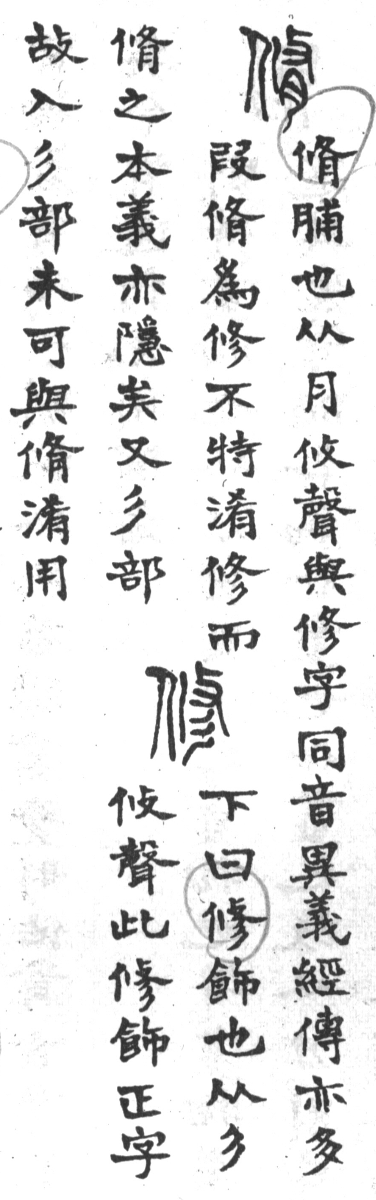 脩
脩脯也从月攸聲與修字同音異義經傳亦多
叚脩爲修不特淆修而
脩之本義亦隱矣又彡部
修
下曰修飾也从彡
攸聲此修飾正字
故入彡部未可與脩淆用